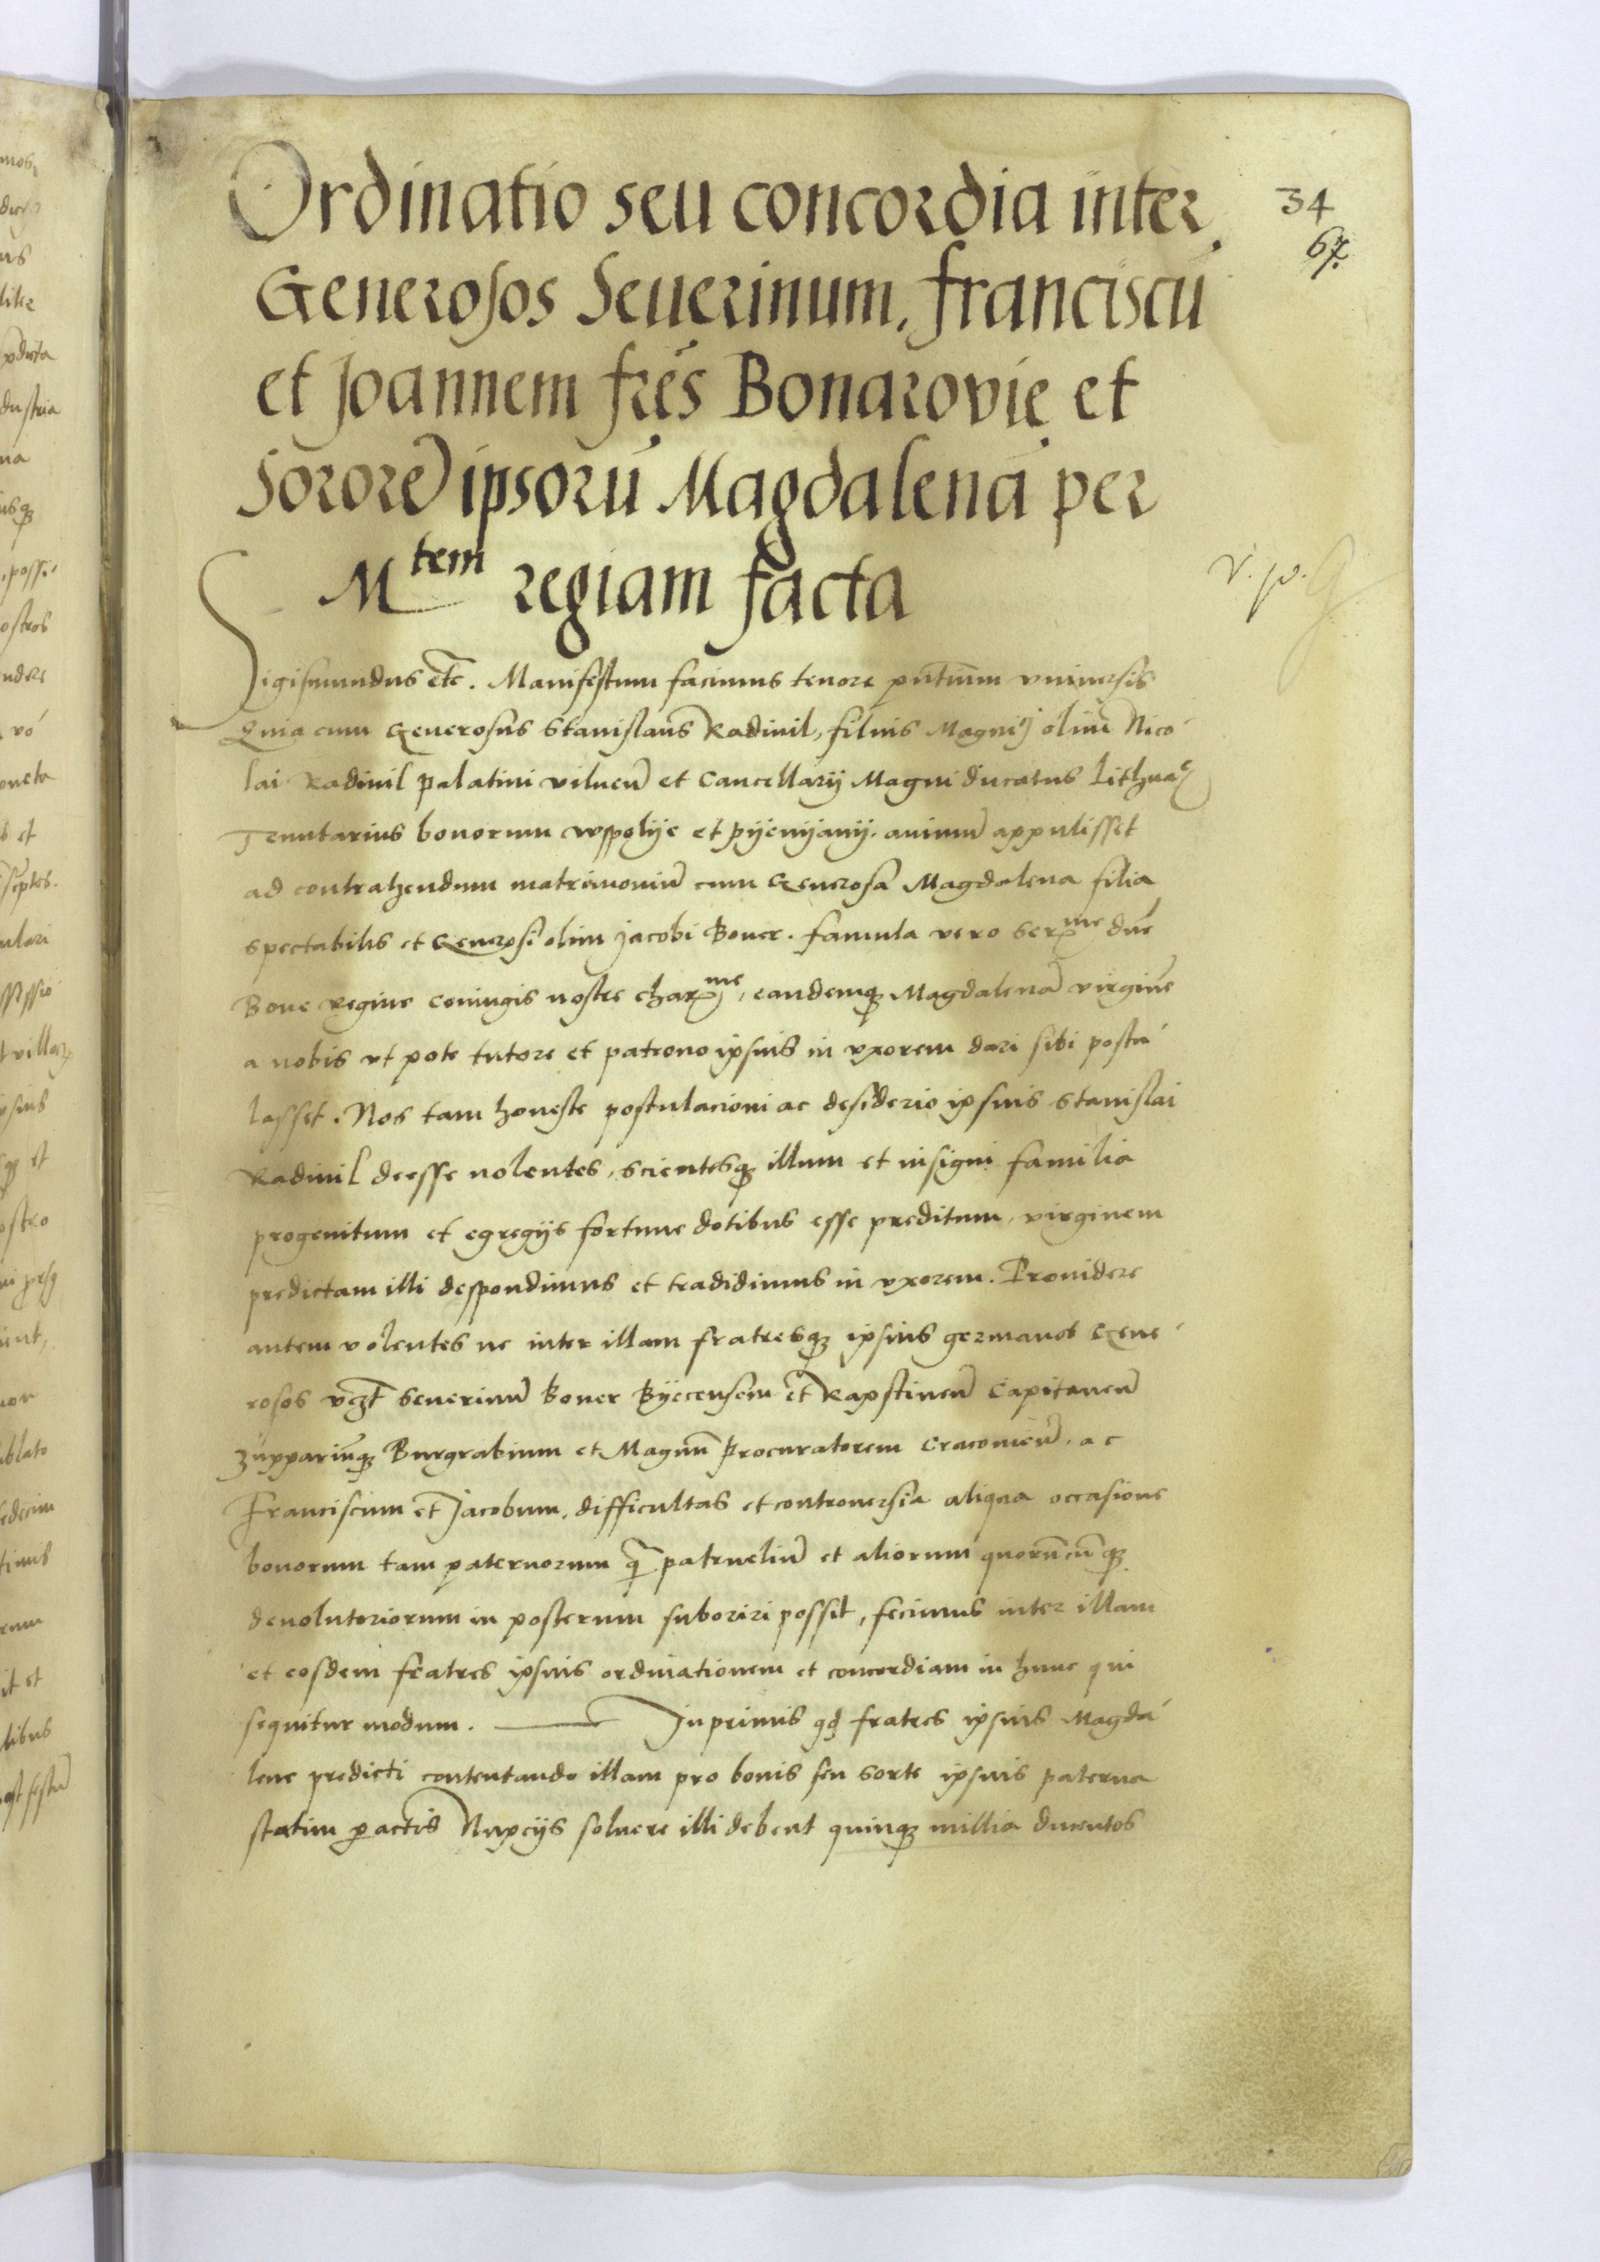 Ordinatio seu concordia inter
34
67.
Generosos Seuerinum, franciscū
et Joannem frēs Bonarovię et
Sororē ipsorū Magdalenā per
Mtem regiam facta
v. p.
Sigismundus etc. Manifestum facimus tenore pn̄tium vniuersis
Quia cum Generosus Stanislaus Radiuil, filius Magnci olim Nico
lai Radiuil palatini vilneñ et Cancellarij Magni ducatus Lithuae
Tenutarius bonorum wspolije et pijenijanij. animū appulisset
ad contrahendum matrimoniū cum Generosa Magdalena filia
spectabilis et Generosi olim Jacobi Boner. famula vero serme dn̄e
Bone regine coniugis nostre charme, eandemqȝ Magdalenā virginē
a nobis vt pote tutore et patrono ipsius in vxorem dari sibi postu
lasset. Nos tam honeste postulacioni ac desiderio ipsius Stanislai
Radiuil deesse nolentes, scientesqȝ illum et insigni familia
progenitum et egregijs fortune dotibus esse preditum, virginem
predictam illi despondimus et tradidimus in vxorem. Prouidere
autem volentes ne inter illam fratresqȝ ipsius germanos Gene
rosos vcȝt Seuerinū Boner Bijecensem et Rapstineñ Capitaneū
Zuppariūqȝ Burgrabium et Magnū Procuratorem Cracouieñ. ac
Franciscum et Jacobum, difficultas et controuersia aliqua occasione
bonorum tam paternorum q̄ patrueliū et aliorum quorūcūqȝ
deuolutoriorum in posterum suboriri possit, fecimus inter illam
et eosdem fratres ipsius ordinationem et concordiam in hunc qui
sequitur modum. Inprimis qd fratres ipsius Magda
lene predicti contentando illam pro bonis seu sorte ipsius paterna
statim peractis Nupcijs soluere illi debent quinqȝ millia ducentos